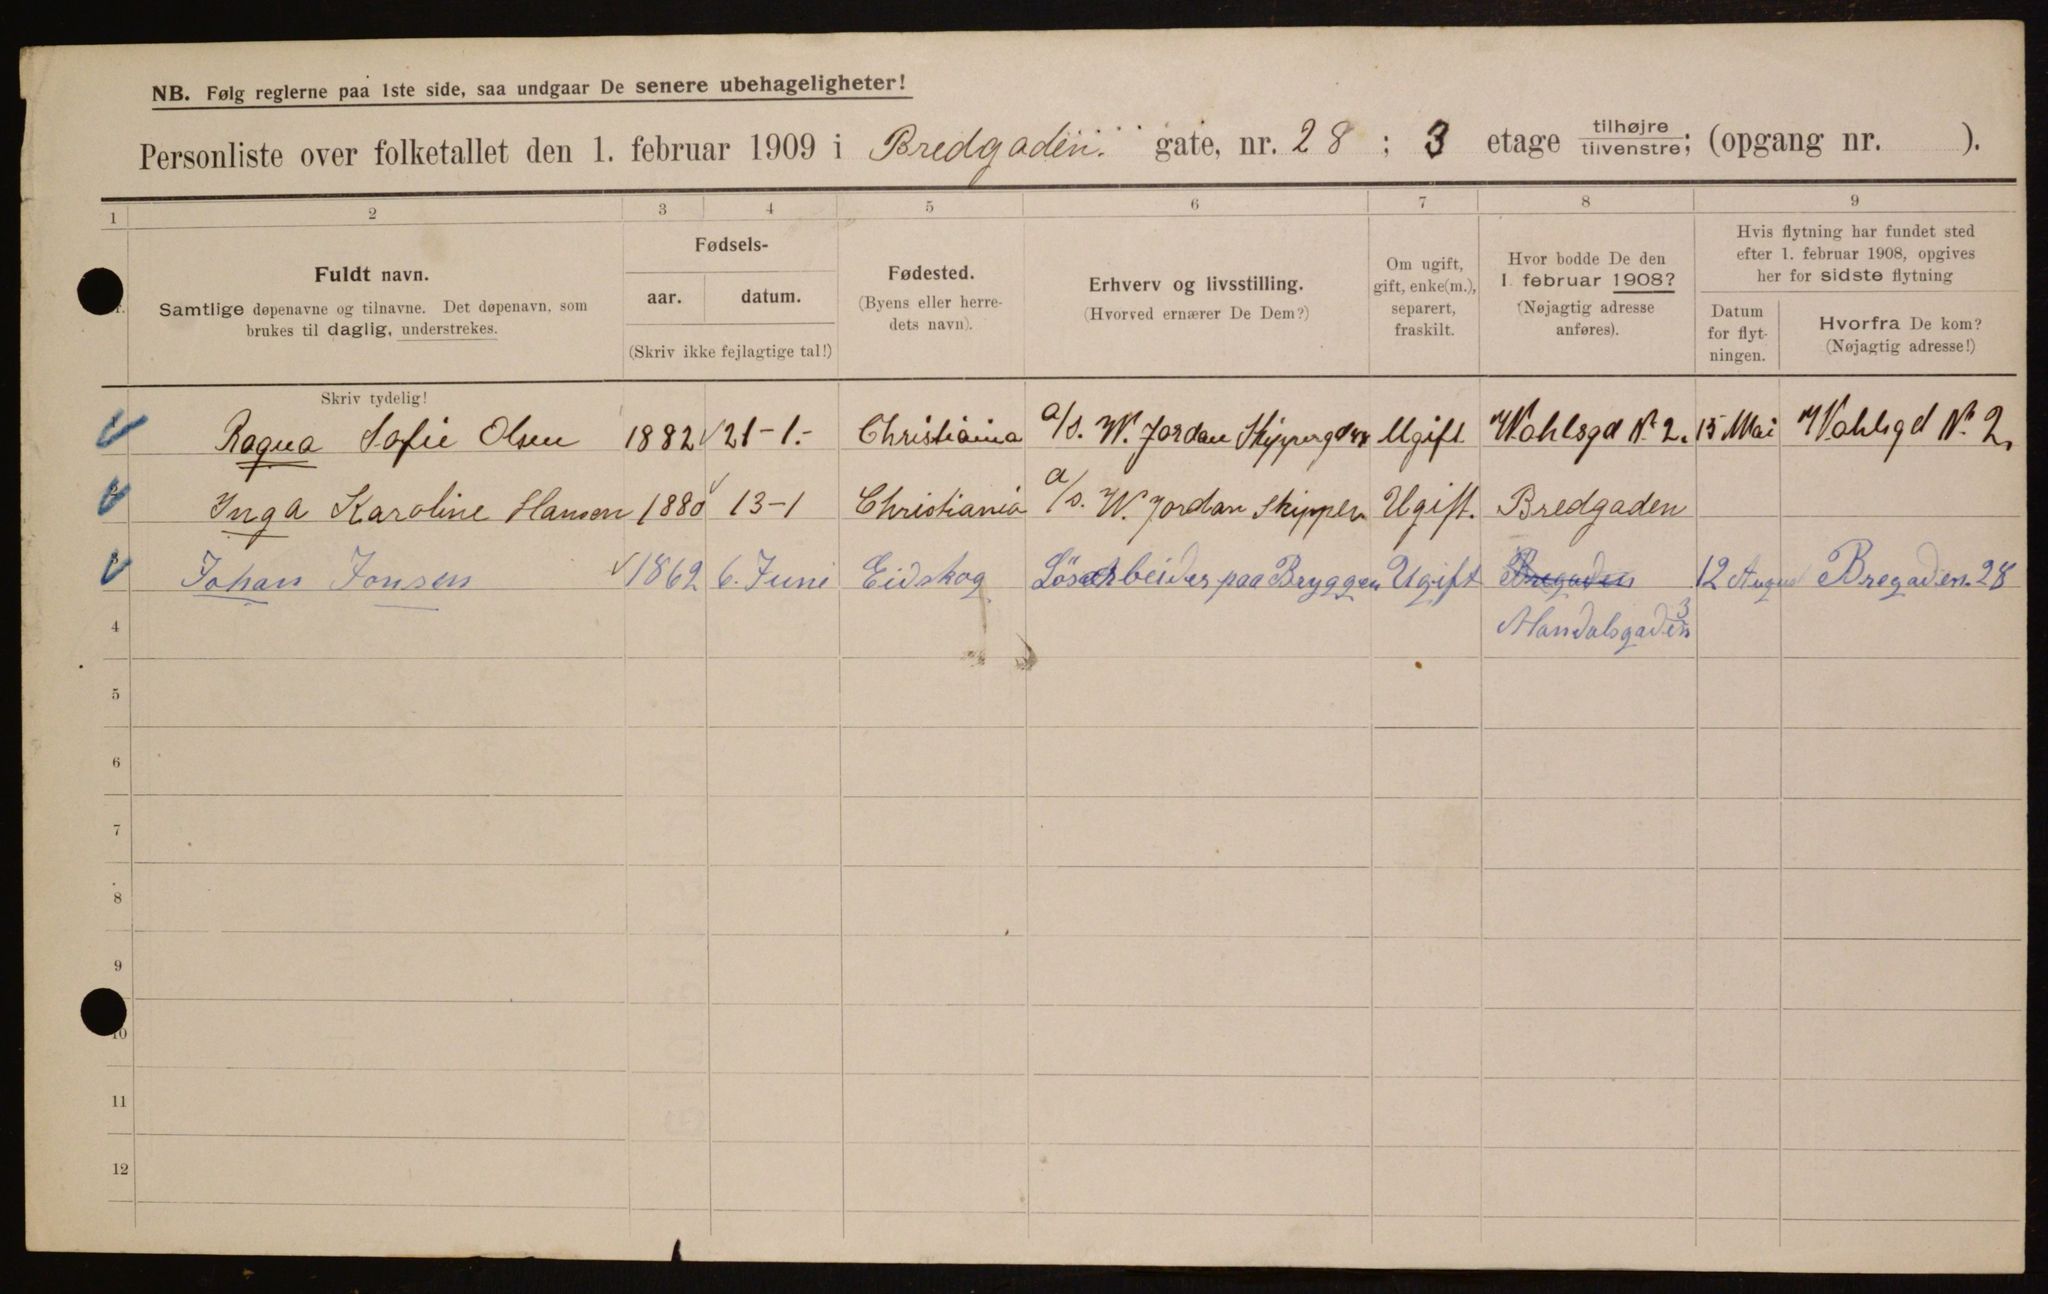 NB. Følg reglerne paa 1ste side, saa undgaar De senere ubehageligheter!
Personliste over folketallet den 1. februar 1909 i Bredgaden. gate, nr. 28 ; 3 etage tilhøjre tilvenstre; (opgang nr. ).
1 2 3 4 5 6 7 8 9
Fuldt navn.
Samtlige døpenavne og tilnavne. Det døpenavn, som
brukes til daglig, understrekes.
Fødsels-
aar. datum.
(Skriv ikke fejlagtige tal!)
Fødested.
(Byens eller herre-
dets navn).
Erhverv og livsstilling.
(Hvorved ernærer De Dem?)
Om ugift,
gift, enke(m.),
separert,
fraskilt.
Hvor bodde De den
1. februar 1908?
(Nøjagtig adresse
anføres).
Hvis flytning har fundet sted
efter 1. februar 1908, opgives
her for sidste flytning
Datum
for flyt-
ningen.
Hvorfra De kom?
(Nøjagtig adresse!)
Skriv tydelig!
Sofie Olsen 1882 21-1.- Christiania a/s. W. Jordan Ugift Wahlsgd No 2. 15 Mai Wahlsgd No 2.
Inga Karoline Hansen 1880 13-1 Christiania a/s. W. Jordan Skipper Ugift. Bredgaden
Johan Jonsen 1862 6. Juni Eidskog Løsarbeider paa Bryggen Ugift Bregaden 12 August Bregaden 28
4 Mandalsgaden 3
5
6
7
8
9
10
11
12